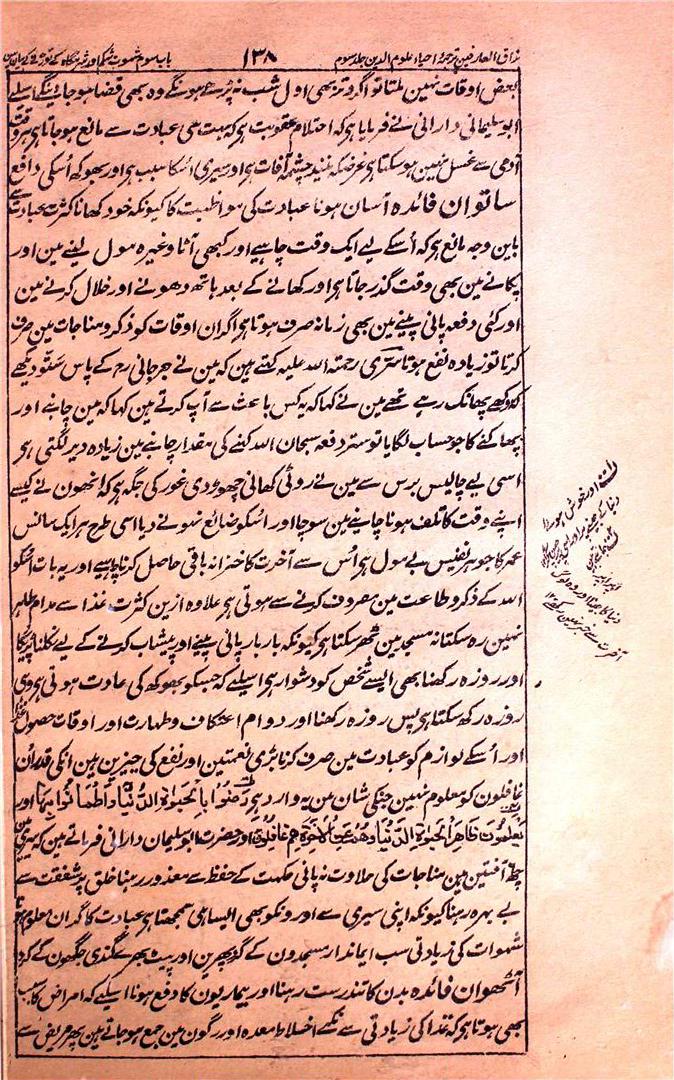 مذاق العارفین ترجمۂ احیاء علوم الدین جلد سوم
۱۳۸
باب سوم شہوت شکم اور شرمگاہ کے توڑنے کے بیان میں
بعض اوقات نہین ملتا تو اگر وتر بھی اول شب نہ پڑھے ہونگے وہ بھی قضا ہو جائینگے اسلیے
ابو سلیمانی دارانی نے فرمایا ہی کہ احتلام عقوبت ہی کہ بہت سی عبادت سے مانع ہو جاتا ہی ہر وقت
آدمی سے غسل نہین ہو سکتا ہی غرضکہ نیند چشمہ آفات ہی اور سیری اسکا سبب ہی اور بھوکھ اُسکی دافع
ساتوان فائدہ آسان ہونا عبادت کی مواظبت کا کیونکہ خود کھانا کثرت عبادت سے
باین وجہ مانع ہی کہ اُسکے لیے ایک وقت چاہیے اور کبھی آٹا وغیرہ مول لینے مین اور
پکانے مین بھی وقت گذر جاتا ہی اور کھانے کے بعد ہاتھ دھونے اور خلال کرنے مین
اور کئی دفعہ پانی پینے مین بھی زمانہ صرف ہوتا ہی اگر ان اوقات کو ذکر و مناجات مین صرف
کرتا تو زیادہ نفع ہوتا سری رحمتہ اللہ علیہ کہتے ہین کہ مین نے جرجانی رح کے پاس ستّو دیکھے
کہ وہ پھانک رہے تھے مین نے کہا کہ یہ کس باعث سے آپ کرتے ہین کہا کہ مین چابنے اور
پھانکنے کا جو حساب لگایا تو ستر دفعہ سبحان اللہ کہنے کی مقدار چابنے مین زیادہ دیر لگتی ہی
اسی لیے چالیس برس سے مین نے روٹی کھانی چھوڑدی غور کی جگہ ہی کہ انھون نے کیسے
اپنے وقت کا تلف ہونا چابنے مین سوچا اور اُسکو ضائع نہونے دیا اسی طرح ہر ایک سانس
عمر کا جوہر نفیس بے مول ہی اُس سے آخرت کا خزانہ باقی حاصل کرنا چاہیے اور یہ بات اُسکو
اللہ کے ذکر و طاعت مین مصروف کرنے سے ہوتی ہی علاوہ ازین کثرت غذا سے مدام طاہر
نہین رہ سکتا نہ مسجد مین ٹھہر سکتا ہی کیونکہ بار بار پانی پینے اور پیشاب کرنے کے لیے نکلنا پڑیگا
اور روزہ رکھنا بھی ایسے شخص کو دشوار ہی اسلیے کہ جسکو بھوکھ کی عادت ہوتی ہی وہی
روزہ رکھ سکتا ہی پس روزہ رکھنا اور دوام اعتکاف و طہارت اور اوقات حصول غذا
اور اُسکے لوازم کو عبادت مین صرف کرنا بڑی نعمتین اور نفع کی چیزین ہین انکی قدر اُن
غافلون کو معلوم نہین جنکی شان مین یہ وارد ہی رَضُوْا بِالْحَیٰوةِ الدُّنْیَا وَاطْمَاَنُّوْا بِہَا اور
یَعْلَمُوْنَ ظَاھِرًا مِّنَ الْحَیٰوةِ الدُّنْیَا وَھُمْ عَنِ الْاٰخِرَةِ ھُمْ غٰفِلُوْنَ اور حضرت ابو سلیمان دارانی فرماتے ہین کہ سیری مین
چھ آفتین ہین مناجات کی حلاوت نہ پانی حکمت کے حفظ سے معذور رہنا خلق پر شفقت سے
بے بہرہ رہنا کیونکہ اپنی سیری سے اورونکو بھی ایسا ہی سمجھتا ہی عبادت کا گران معلوم ہونا
شہوات کی زیادتی سب ایماندار مسجدون کے گرد پھرین اور پیٹ بھرے گندی جگھون کے گرد
آٹھوان فائدہ بدن کا تندرست رہنا اور بیماریون کا دفع ہونا اسلیے کہ امراض کا سبب
بھی ہوتا ہی کہ غذا کی زیادتی سے نکمے اخلاط معدہ اور رگون مین جمع ہو جاتے ہین پھر مریض سے
اور خوش ہوے
دنیا کے جینے پر اور اسی پر چین پکڑا
جانتے ہین
اوپر اوپر
دنیا کا جینا اور وہ لوگ
آخرت سے خبر نہین رکھتے ۱۲